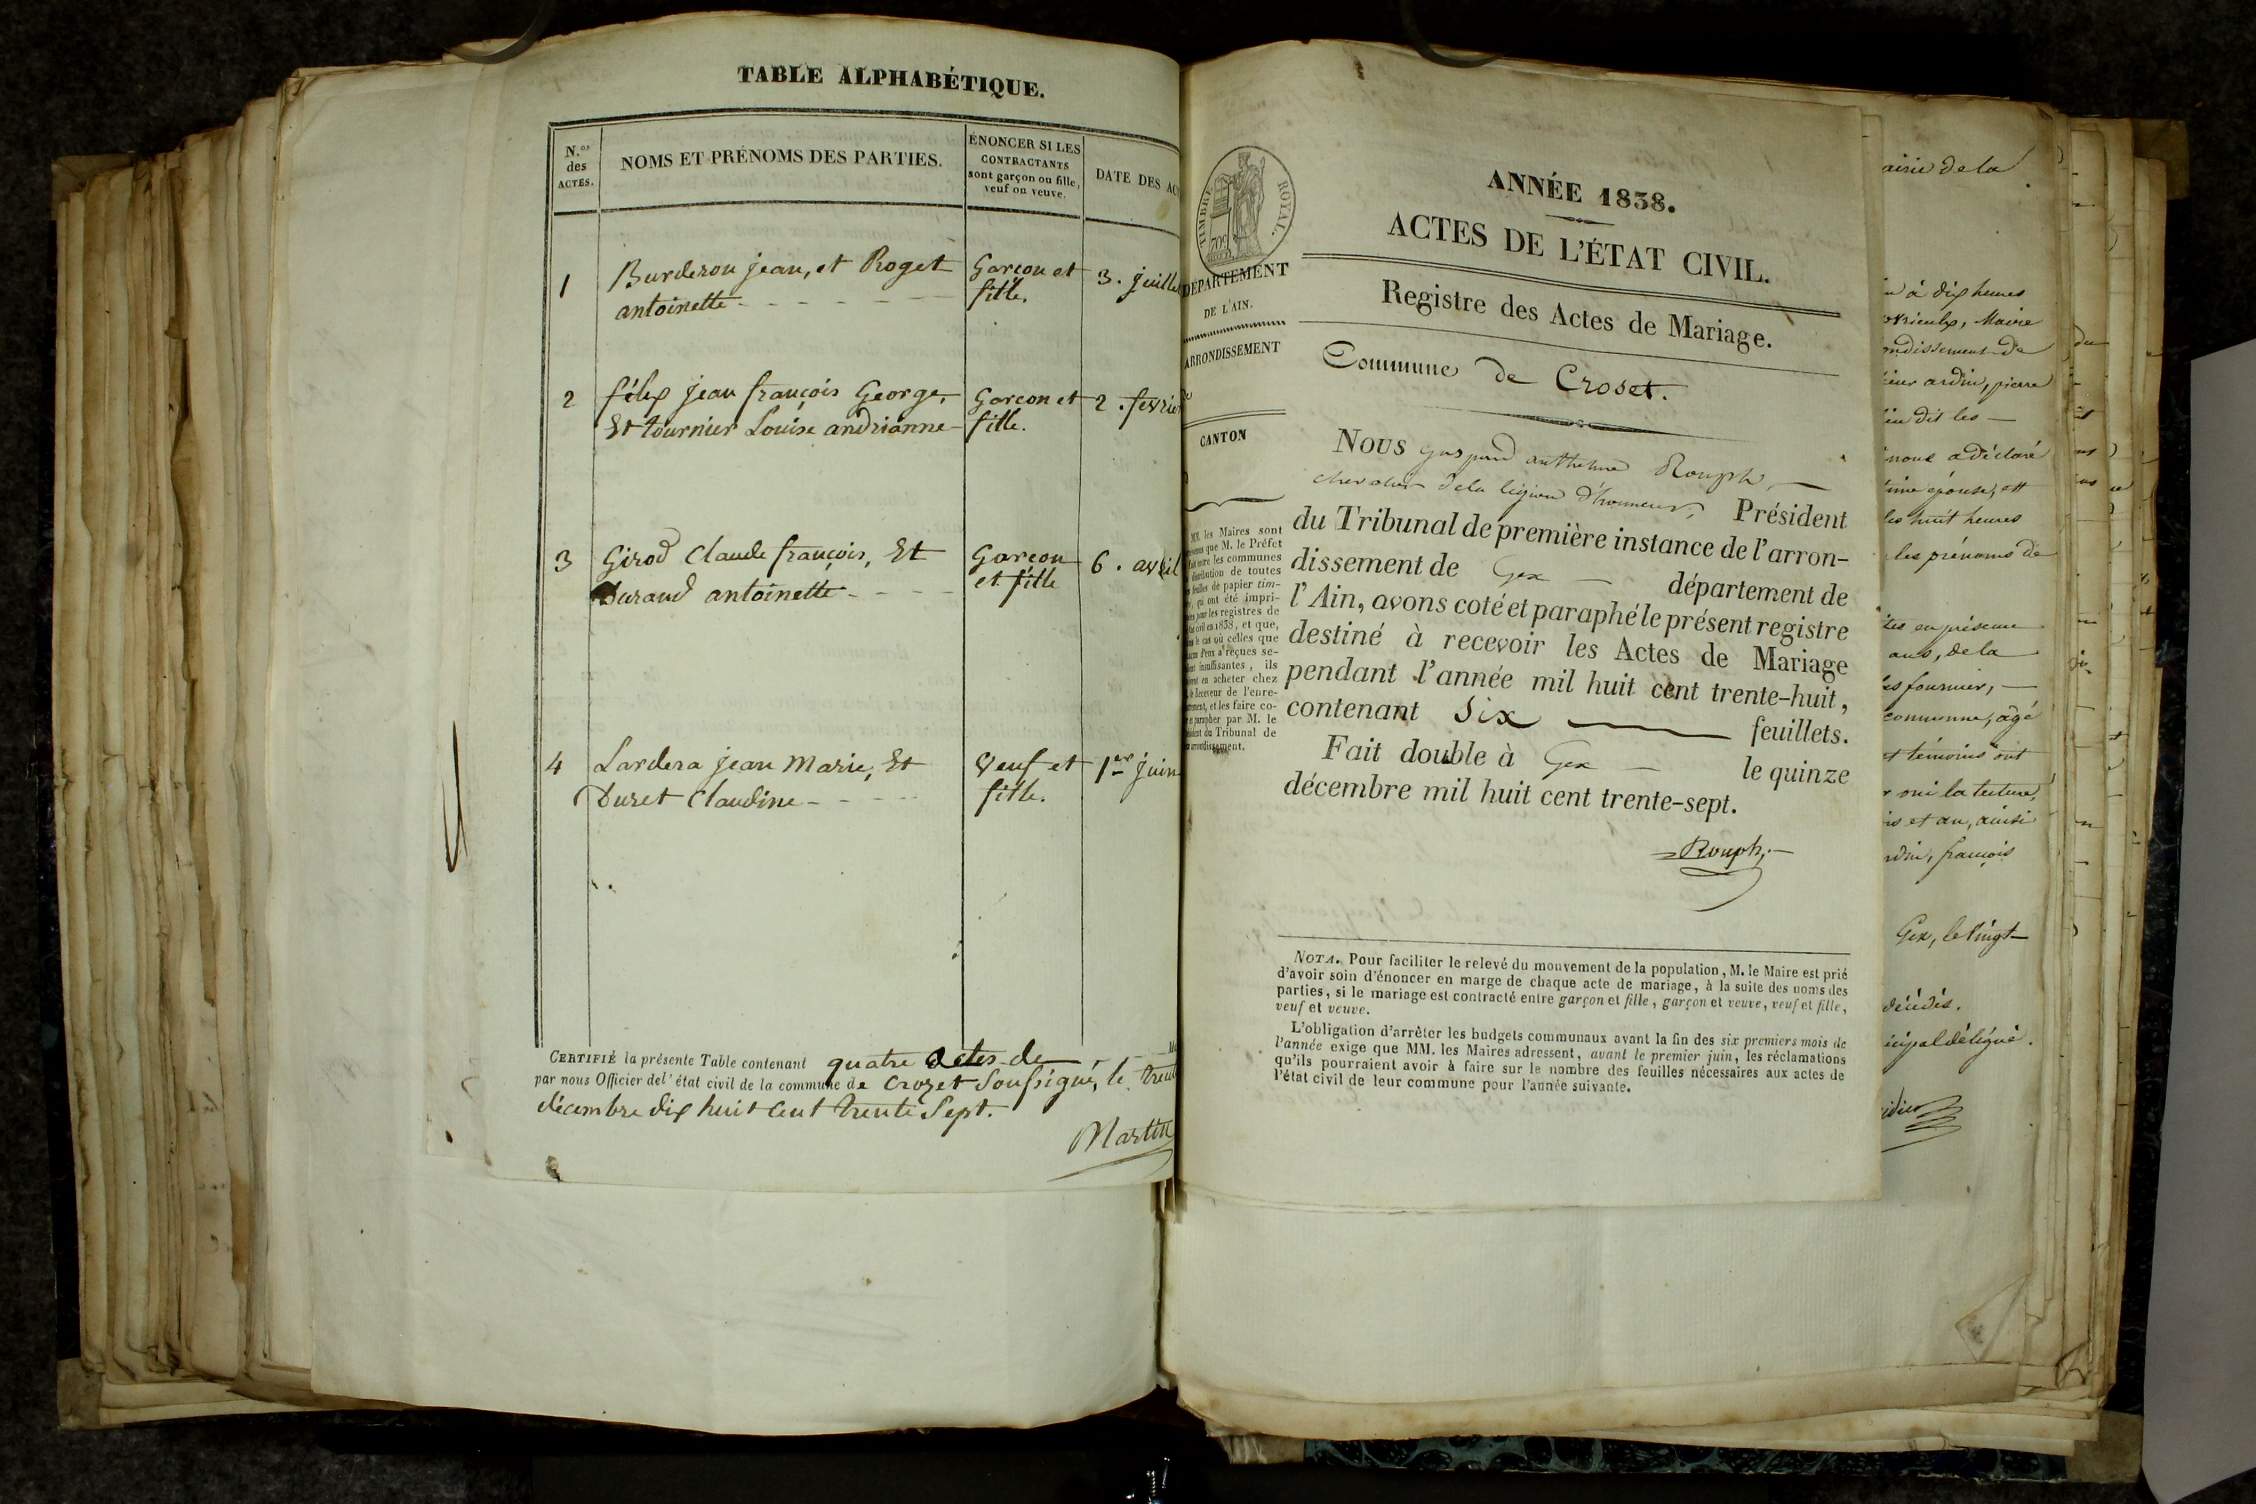 TABLE ALPHABÉTIQUE.
N.os des ACTES.
NOMS ET PRÉNOMS DES PARTIES.
ÉNONCER SI LES
CONTRACTANTS
sont garçon ou fille,
veuf ou veuve.
DATE DES AC
1 Burdeson jean, et Roget
antoinette
Garçon et
fille.
3. juille
2 félix jean françois George,
Et tournier Louise andrianne
Garcon et
fille.
2. fevrie
3 Girod Claude françois, Et
Durand antoinette
Garcon
et fille
6. avril
4 Lardera jean Marie, Et
Duret Claudine
Veuf et
fille.
1er juin
CERTIFIÉ la présente Table contenant quatre actes de
par nous Officier del' état civil de la commune de Crozet Soussigné, le trent
décembre dix huit cent trente Sept.
Martin
TIMBRE ROYAL.
DÉPARTEMENT
DE L'AIN.
ARRONDISSEMENT
CANTON
MM. les Maires sont
que M. le Préfet
les communes
distribution de toutes
feuilles de papier tim-
qui ont été impri-
pour les registres de
civil en 1838, et que,
le cas où celles que
d'eux a reçues se-
insuffisantes, ils
en acheter chez
le Receveur de l'enre-
et les faire co-
et parapher par M. le
du Tribunal de
arrondissement.
ANNÉE 1838.
ACTES DE L'ÉTAT CIVIL.
Registre des Actes de Mariage.
Commune de Croset.
Nous Gaspard anthelme Rouph,
chevalier de la légion d'honneur, Président
du Tribunal de première instance de l'arron-
dissement de Gex département de
l'Ain, avons coté et paraphé le présent registre
destiné à recevoir les Actes de Mariage
pendant l'année mil huit cent trente-huit,
contenant Six feuillets.
Fait double à Gex le quinze
décembre mil huit cent trente-sept.
Rouph
NOTA. Pour faciliter le relevé du mouvement de la population, M. le Maire est prié
d'avoir soin d'énoncer en marge de chaque acte de mariage, à la suite des noms des
parties, si le mariage est contracté entre garçon et fille, garçon et veuve, veuf et fille,
veuf et veuve.
L'obligation d'arrêter les budgets communaux avant la fin des six premiers mois de
l'année exige que MM. les Maires adressent, avant le premier juin, les réclamations
qu'ils pourraient avoir à faire sur le nombre des feuilles nécessaires aux actes de
l'état civil de leur commune pour l'année suivante.
airie de la
à dix heures
Maire
ondissement de
ardin, pierre
dit les
nous a déclaré
time épouse, et
les huit heures
les prénoms de
en présence
ans, de la
fournier,
commune, agé
et témoins ont
oui la lecture,
et an, ainsi
françois
Gex, le vingt
décédés.
icipal délégué.